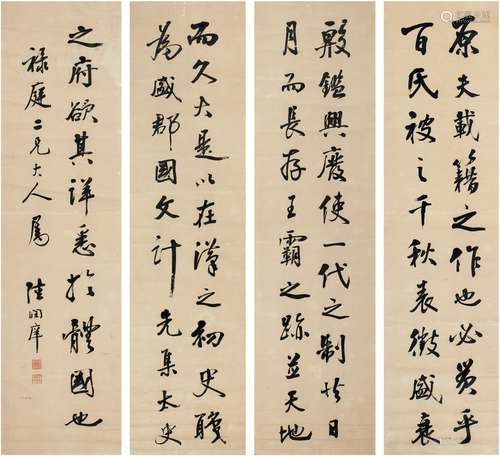 原夫載籍之作也必貫乎
百氏被之千秋表徵盛衰
殷鑑興廢使一代之制共日
月而長存王霸之跡並天地
而久大是以在漢之初史職
為盛郡國文計先集太史
之府欲其詳悉於體國也
祿庭二兄大人屬
陸潤庠